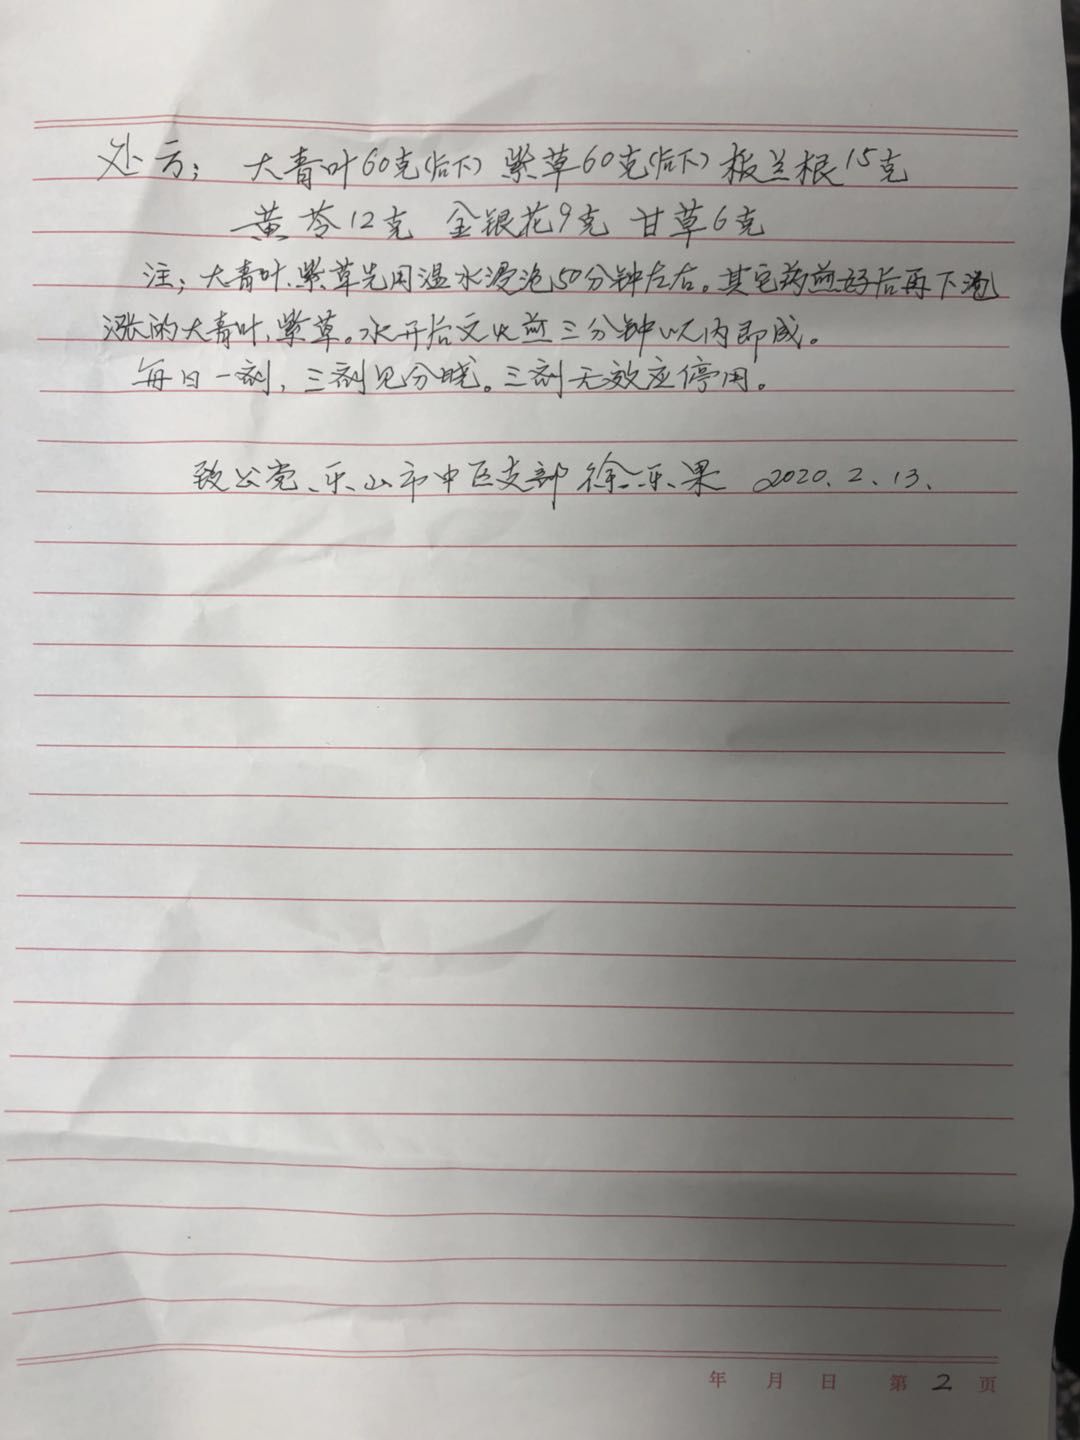 处方：大青叶60克(后下) 紫草60克(后下) 板兰根15克
黄芩12克 金银花9克 甘草6克
注：大青叶、紫草先用温水浸泡50分钟左右。其它药煎好后再下泡
涨的大青叶、紫草。水开后文火煎三分钟以内即成。
每日一剂，三剂见分晓。三剂无效应停用。
致公党、乐山市中区支部 徐乐果 2020.2.13.
年 月 日 第 2 页